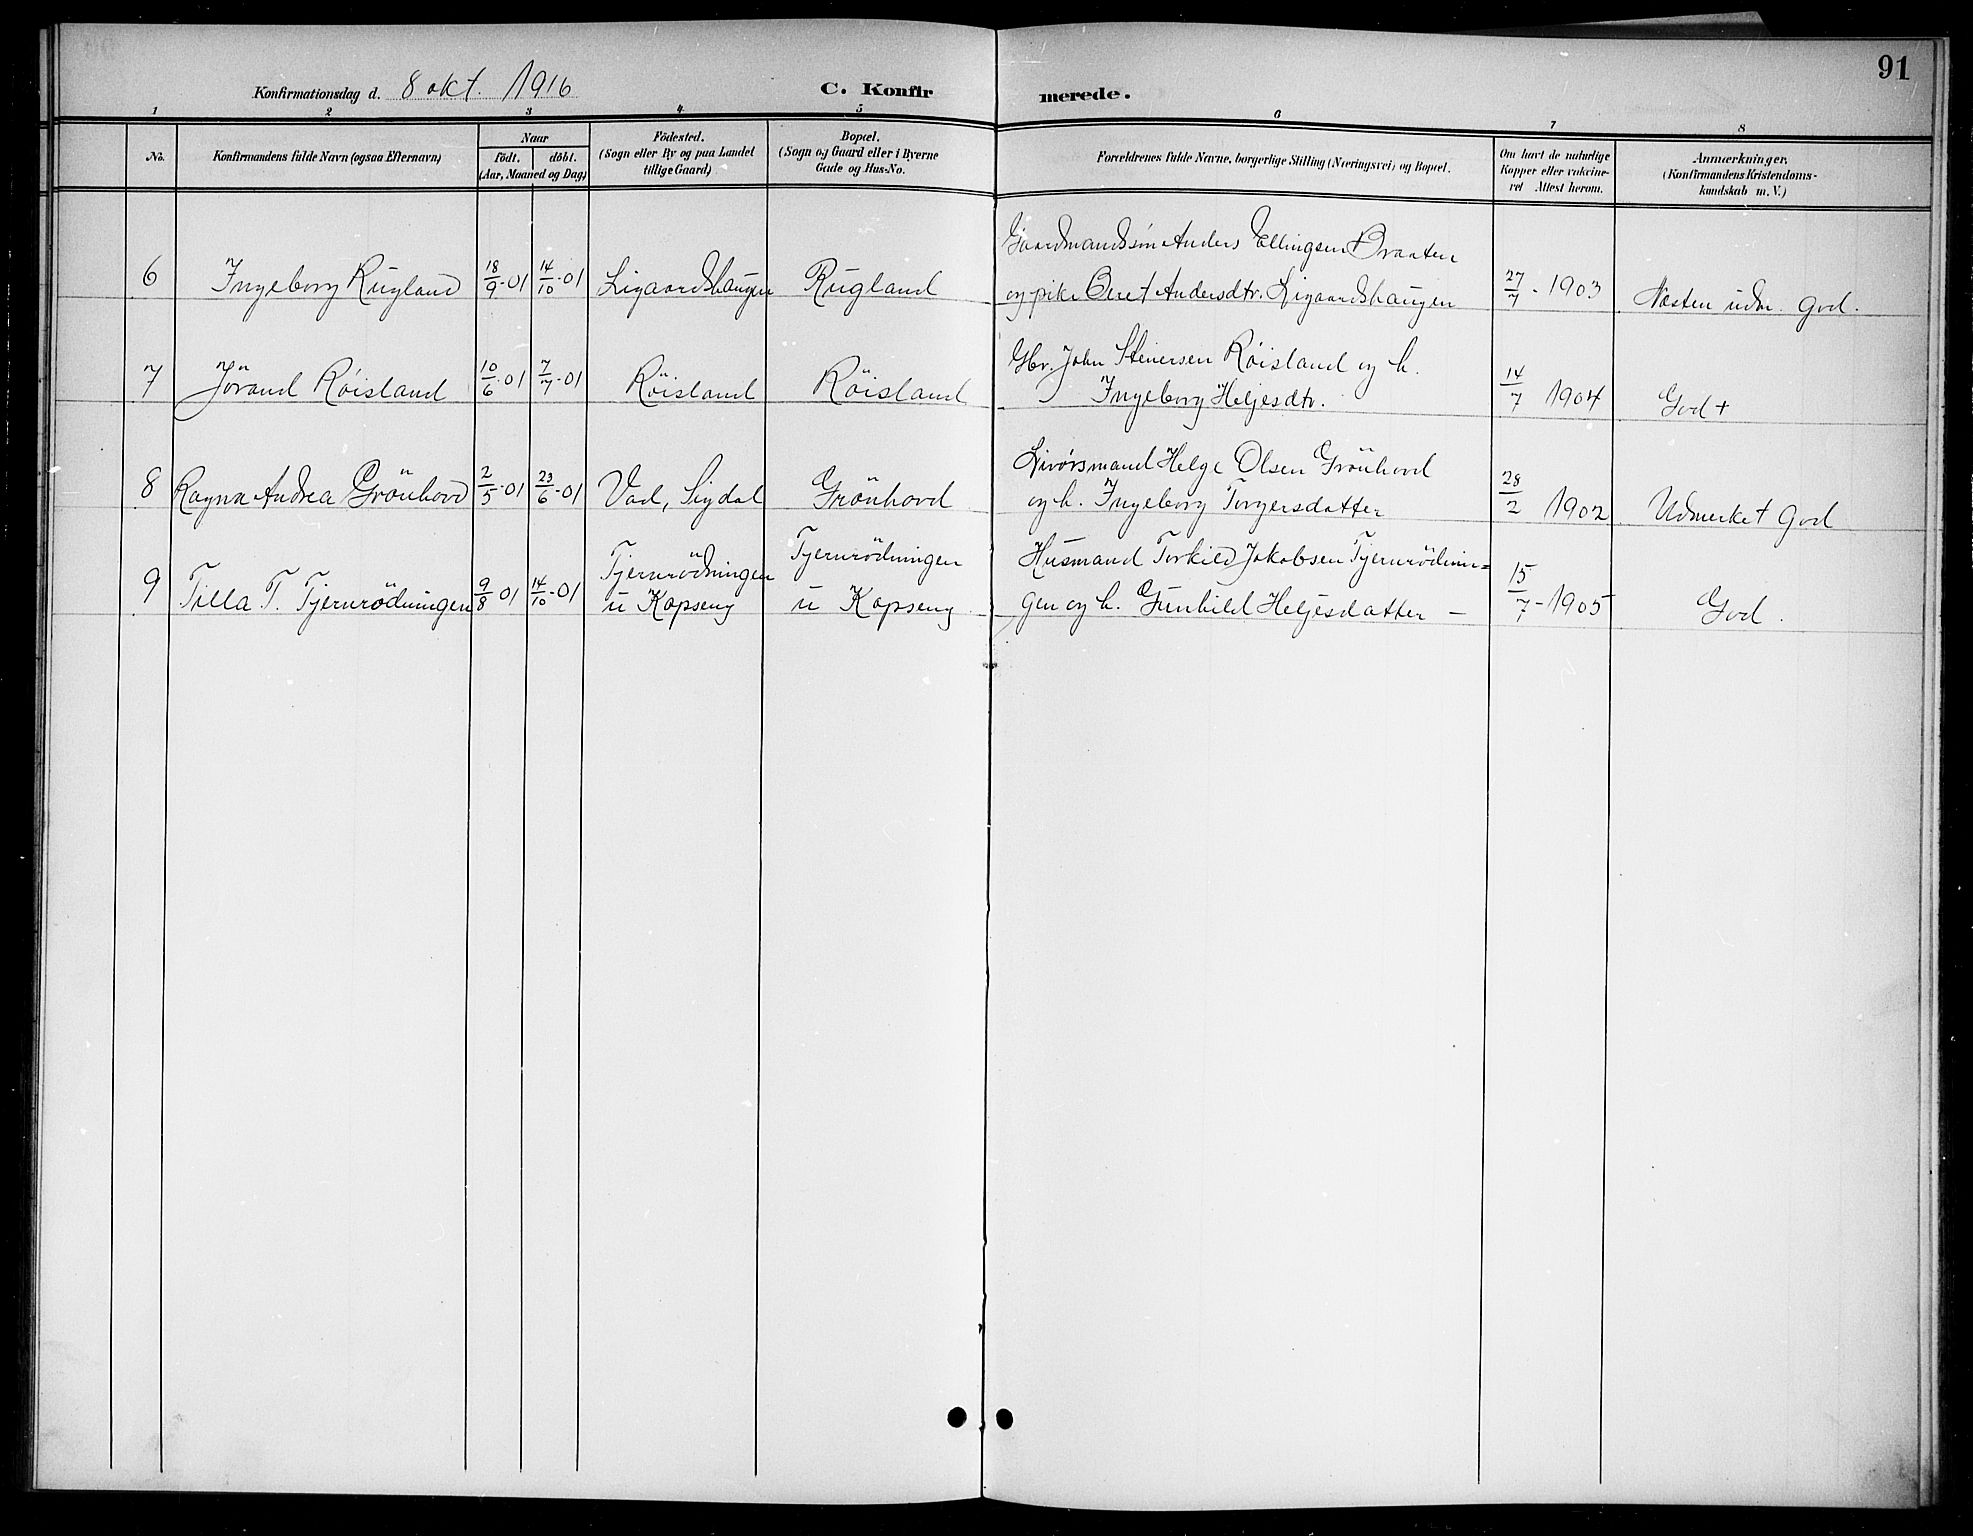 91
Konfirmationsdag d. 8 okt. 1916
C. Konfirmerede.
1 2 3 4 5 6 7 8
No.
Konfirmandens fulde Navn (ogsaa Efternavn)
Naar
födt. döbt.
(Aar, Maaned og Dag)
Födested.
(Sogn eller By og paa Landet
tillige Gaard)
Bopæl.
(Sogn og Gaard eller i Byerne
Gade og Hus-No.
Forældrenes fulde Navne, borgerlige Stilling (Næringsvei) og Bopæl.
Om havt de naturlige
Kopper eller vakcine-
ret Attest herom.
Anmærkninger.
(Konfirmandens Kristendoms-
kundskab m. V.)
Gaardmandssøn Anders Ellingsen Braaten
6 Ingeborg Rugland 18/9-01 14/10-01 Ligaardshaugen Rugland og pike Beret Andersdtr. Ligaardshaugen 27/7-1903 Næsten udm. god.
Gbr. John Steinersen Röisland og h.
7 Jörand Röisland 10/6-01 7/7-01 Röisland Röisland Ingeborg Heljesdtr. 14/7 1904 God+
Livörsmand Helge Olsen Grönhovd
8 Ragna Andrea Grönhovd 2/5-01 23/6-01 Vad, Sigdal Grönhovd og h. Ingeborg Torgersdatter 28/2 1902 Udmerket god
Tjernrödningen Tjernrödningen Husmand Torkild Jakobsen Tjernrödnin=
9 Tilla T. Tjernrödningen 9/8 01 14/10-01 u Kopseng u Kopseng gen og h. Gunhild Heljesdatter — 15/7-1905 God.